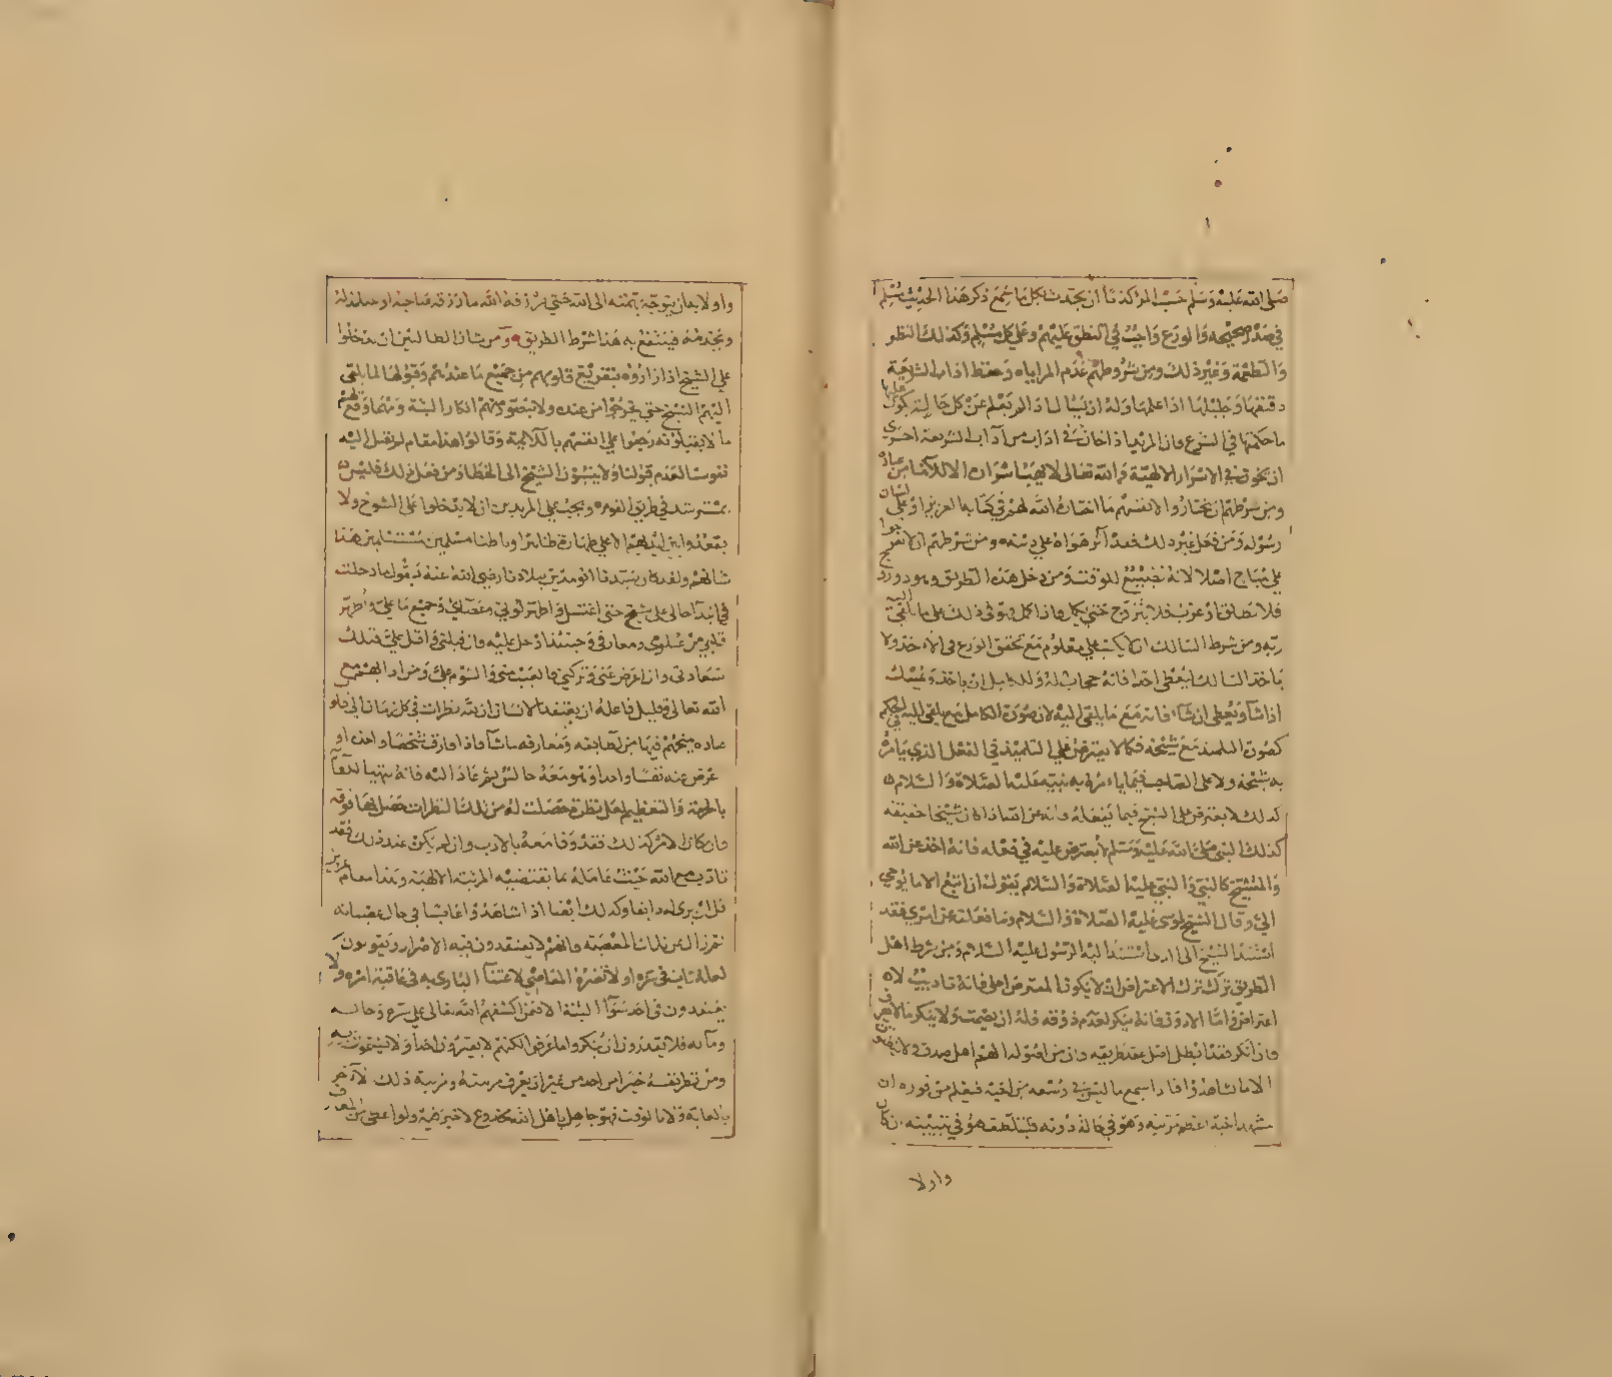 صلى الله عليه وسلم حسب المرء كذبا ان يحدث بكل ما سمع ذكر هذا الحديث مسلم
في صدر صحيحه والورع واجب في النطق عليهم وعلى كل مسلم وكذلك النظر
والطعمة وغير ذلك ومن شروطهم عدم المراياه وحفظ اداب الشريعة
ما حكمتها في الشرع فان المريد اذا خان في ادب من آداب الشريعة احرى
ان يخون في الاسرار الالهية والله تعالى لا يهب اسراره الا للامنا من عباده
ومن شرطهم ان يختاروا لانفسهم ما اختاره الله لهم في كتابه العزيز او على لسان
رسوله ومن فعل غير ذلك فقد آثر هواه على دينه ومن شرطهم ان لا
على مباح اصلا لانه تضييع للوقت ومن دخل هذه الطريق وهو
فلا يطلق او عزب فلا يتزوج حتى يكمل واذا كمل فهو في ذلك على ما يلقى اليه
ربه ومن شرط السالك ان لا يكون على معلوم مع تحقق الورع في الاخذ ولا
ياخذ السالك ليعطي احدا فانه حجاب له وللكامل ان ياخذ ويمسك
اذا شآ ويعطي ان شآء فانه مع ما يلقى اليه لان صورة الكامل مع ملقى اليه في الحكم
كصورة التلميذ مع شيخه فكما لا يعترض على التلميذ في الفعل الذي يامره
به شيخه ولا على الصاحب فيما ياءمره به نبيه عليه الصلاة والسلام
كذلك لا يعترض على الشيخ فيما يفعله فانه عن الله اذا كان شيخا حقيقة
كذلك النبي صلى الله عليه وسلم لا يعترض عليه في فعله فانه اخذ عن الله
والشيخ كالنبي والنبي عليه الصلاة والسلام يقول ان اتبع الا ما يوحى
الي وقال الشيخ لموسى عليه الصلاة والسلام وما فعلته عن امري فقد
استند الشيخ الى ما استند اليه الرسول عليه السلام ومن شرط اهل
الطريق ترك الاعتراض ان لا يكون المعترض اعلى فانه تاديب لا
اعتراض واما الادون فانه ينكر لعدم ذوقه فله ان يصمت ولا ينكر
فان انكر فقد ابطل اصل عقد طريقه وان من اصولهم انهم اهل صدق ولا
الا ما شاهدوا فاذا سمع ما ليس في وسعه من اخيه فيعلم من فوره ان
مشهد اخيه اعظم مرتبة وهو في حالة دونه
واولا
واولا بان يتوجه بهمته الى الله حتى يرزقه الله ما رزقه صاحبه او
ويخدمه فينتفع به هذا شرط الطريق ومن شان الطالبين ان يدخلوا
على الشيخ اذا زاروه بتفريغ قلوبهم من جميع ما عندهم وقبولها لما يلقى
اليهم الشيخ حتى يخرجوا من عنده ولا يتصور منهم انكار البتة ومهما وقع لهم
ما لا يقبلونه رجعوا على انفسهم بالملامة وقالوا هذا مقام لم نصل اليه
نفوسنا لعدم قبولنا ولا ينسبون الشيخ الى الخطا ومن فعل ذلك فليس
بمسترشد في طريق القوم ويجب على المريدين ان لا يدخلوا على الشيوخ ولا
يقعدوا بين ايديهم الا على طهارة ظاهرا وباطنا مسلمين مستسلمين هذا
شانهم ولقد كان سيدنا ابو مدين ببلادنا رضي الله عنه يقول ما دخلت
في ابتدآ حالي على شيخ حتى اغتسل واطهر ثوبي وعصاي وجميع ما علي واطهر
قلبي من علومي ومعارفي وحينئذ ادخل عليه فان قبلني واقبل علي فتلك
سعادتي وان اعرض عني وتركني فالعيب مني والشوم علي ومن ادابهم مع
الله تعالى وقليل فاعله ان يعتقد الانسان ان لله نظرات في كل زمان الى قلوب
عباده يمنحهم فيها من لطايفه ومعارفه ما شآ فاذا فارق شخصا واحدا او
عرض عنه نفسا واحدا وهو معه جالس ثم عاد اليه فانه يتهيا للقآ
بالحرمة والتعظيم لعل نظرة حصلت له من تلك النظرات حصل بها فوقه
فان كان الامر كذلك فقد وفا معه بالادب وان لم يكن عند ذلك فقد
تادب مع الله حيث عامله بما تقتضيه المرتبة الالهية وهذا مقام عزيز
قل ان يرى له ذايقا وكذلك ايضا اذا شاهدوا عاصيا في حال عصيانه
ثم زال عن تلك المعصية فانهم لا يعتقدون فيه الاصرار ويقولون
لعله تاب في سره او لا تضره المعاصي لاعتنآ الباري به في عاقبة امره ولا
يعتقدون في احد سوءا البتة الا فيمن اكشفهم الله تعالى على سره وحاله
ومآله فلا يقدرون ان ينكروا ما عرفوا لكنهم لا يعيرون احدا ولا
ومن نظر نفسه خيرا من احد من غير ان يعرف مرتبته ومرتبة ذلك الآخر
بالغاية لا بالوقت فهو جاهل باهل الله مخدوع لا خير فيه ولو اعطي من